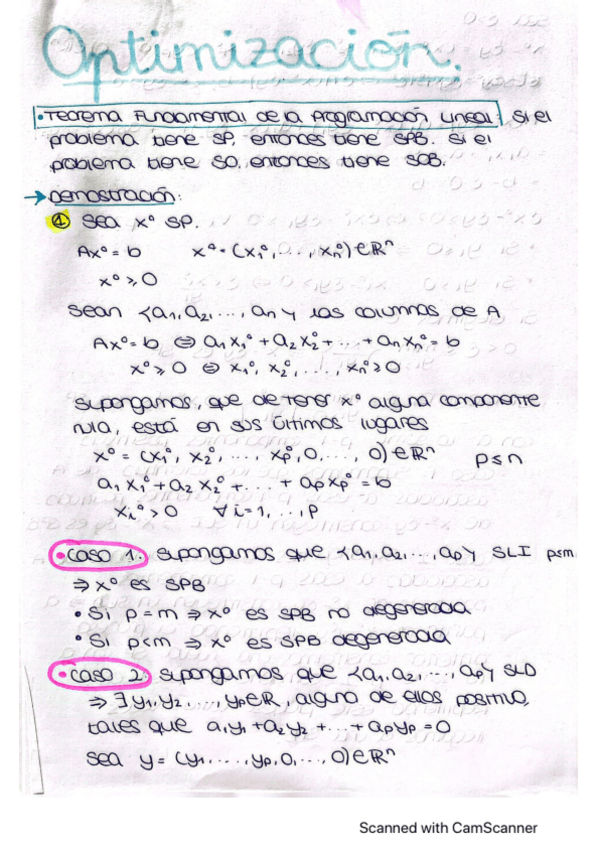 Optimización.
• Teorema Fundamental de la Programación Lineal: Si el
problema tiene SP, entonces tiene SPB. Si el
problema tiene SO, entonces tiene SOB.
→ Demostración:
① Sea x⁰ SP.
Ax⁰ = b x⁰ = (x₁⁰, ..., xₙ⁰) ∈ ℝⁿ
x⁰ ≥ 0
Sean {a₁, a₂, ..., aₙ} las columnas de A
Ax⁰ = b ⇔ a₁x₁⁰ + a₂x₂⁰ + ... + aₙxₙ⁰ = b
x⁰ ≥ 0 ⇔ x₁⁰, x₂⁰, ..., xₙ⁰ ≥ 0
Supongamos, que de tener x⁰ alguna componente
nula, está en sus últimos lugares
x⁰ = (x₁⁰, x₂⁰, ..., xₚ⁰, 0, ..., 0) ∈ ℝⁿ p ≤ n
a₁x₁⁰ + a₂x₂⁰ + ... + aₚxₚ⁰ = b
xᵢ⁰ > 0 ∀ i = 1, ..., p
• Caso 1. Supongamos que {a₁, a₂, ..., aₚ} SLI p ≤ m
⇒ x⁰ es SPB
• Si p = m ⇒ x⁰ es SPB no degenerada
• Si p < m ⇒ x⁰ es SPB degenerada
• Caso 2. Supongamos que {a₁, a₂, ..., aₚ} SLD
⇒ ∃ y₁, y₂, ..., yₚ ∈ ℝ, alguno de ellos positivo,
tales que a₁y₁ + a₂y₂ + ... + aₚyₚ = 0
Sea y = (y₁, ..., yₚ, 0, ..., 0) ∈ ℝⁿ
Scanned with CamScanner